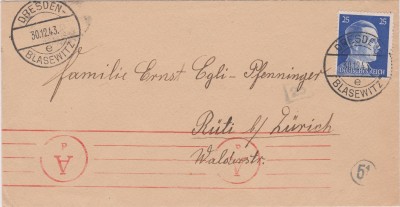 DRESDEN-
30.12.43.
e
BLASEWITZ
25 25
DRESDEN-
e
BLASEWITZ
Familie Ernst Egli-Pfenninger
Rüti b/Zürich
Walderstr.
A
P
A
P